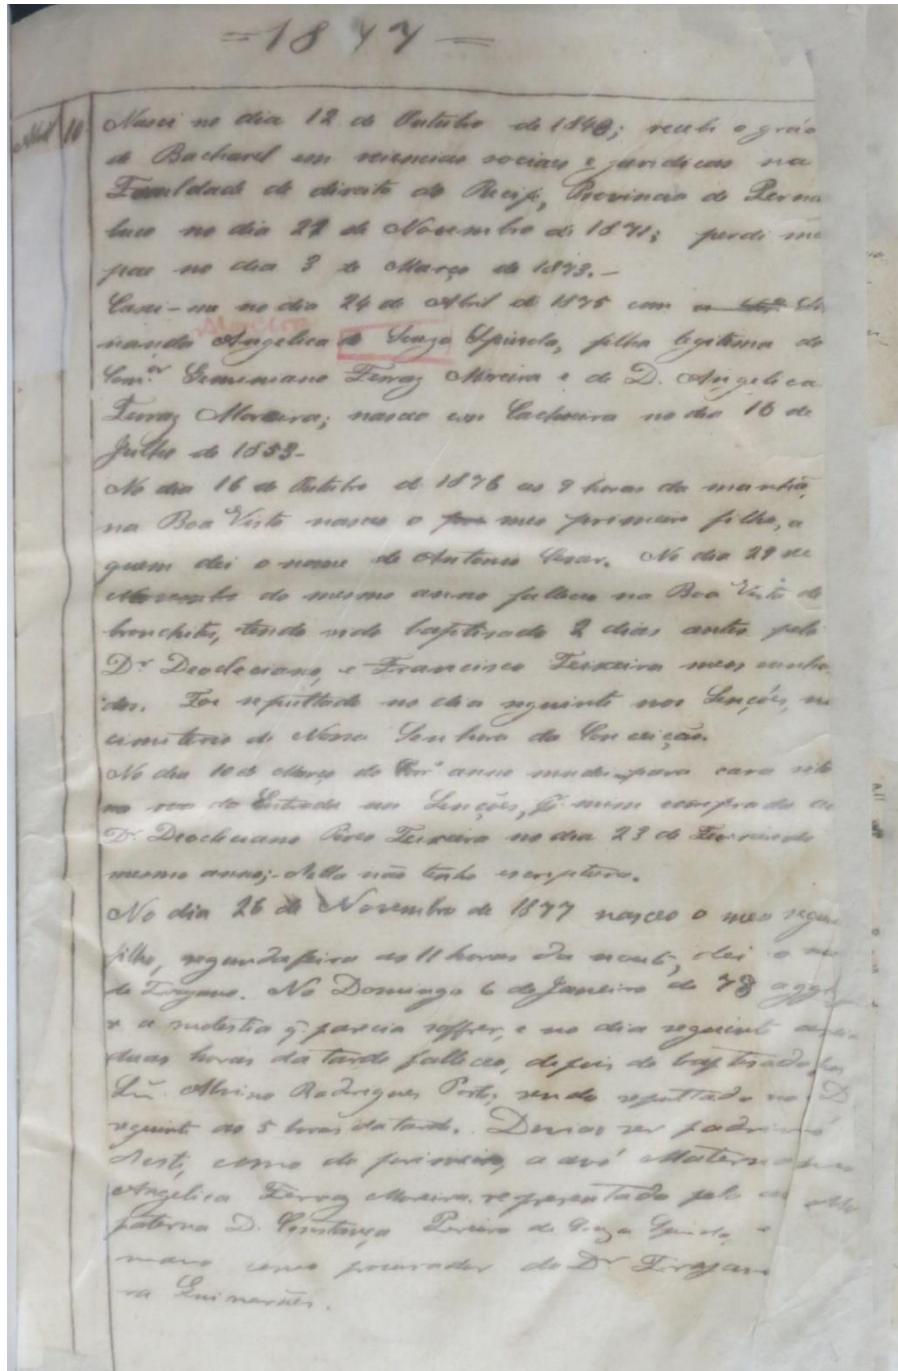 =1877=
Abril 10
Nasci no dia 12 de Outubro de 1848; recebi o gráo
de Bacharel em sciencias sociaes e juridicas na
Faculdade de direito do Recife, Provincia de Perna
buco no dia 22 de Novembro de 1871; perdi meu
pae no dia 3 de Março de 1873.—
Casei-me no dia 24 de Abril de 1875 com
Angelica de Souza Spinola, filha legitima do
Com.or Geminiano Ferraz Moreira e de D. Angelica
Ferraz Moreira; nasceo em Cachoeira no dia 16 de
Julho de 1853-
No dia 16 de Outubro de 1876 as 9 horas da manhã,
na Boa Vista nasceo o meo primeiro filho, a
quem dei o nome de Antonio Cesar. No dia 29 de
Novembro do mesmo anno falleceo na Boa Vista de
bronchites, tendo sido baptisado 2 dias antes pelo
Dr Deocleciano, e Francisco Teixeira meos cunha
dos. Foi sepultado no dia seguinte nos Lençóes, no
cimiterio de Nossa Senhora da Conceição.
No dia 10 de Março do anno mudei-me para casa sita
na rua da Entrada nos Lençóes, comprada ao
Dr. Deocleciano Pires Teixeira no dia 23 de Fevereiro do
mesmo anno;- della não tenho escriptura.
No dia 26 de Novembro de 1877 nasceo o meo segun
filho, segunda feira as 11 horas da noute, dei o
de Trajano. No Domingo 6 de Janeiro de 78
a molestia q. parecia soffrer, e no dia seguinte
duas horas da tarde falleceo, depois de baptisado
Alvino Rodrigues Porto, sendo sepultado no D
seguinte as 5 horas da tarde. ser padrinho
deste, como do primeiro, a avó Materna
Angelica Ferraz Moreira representada pela
paterna D. Constança Pereira de Souza Spinola, e
mano como procurador do Dr Trajan
ra Guimarães.